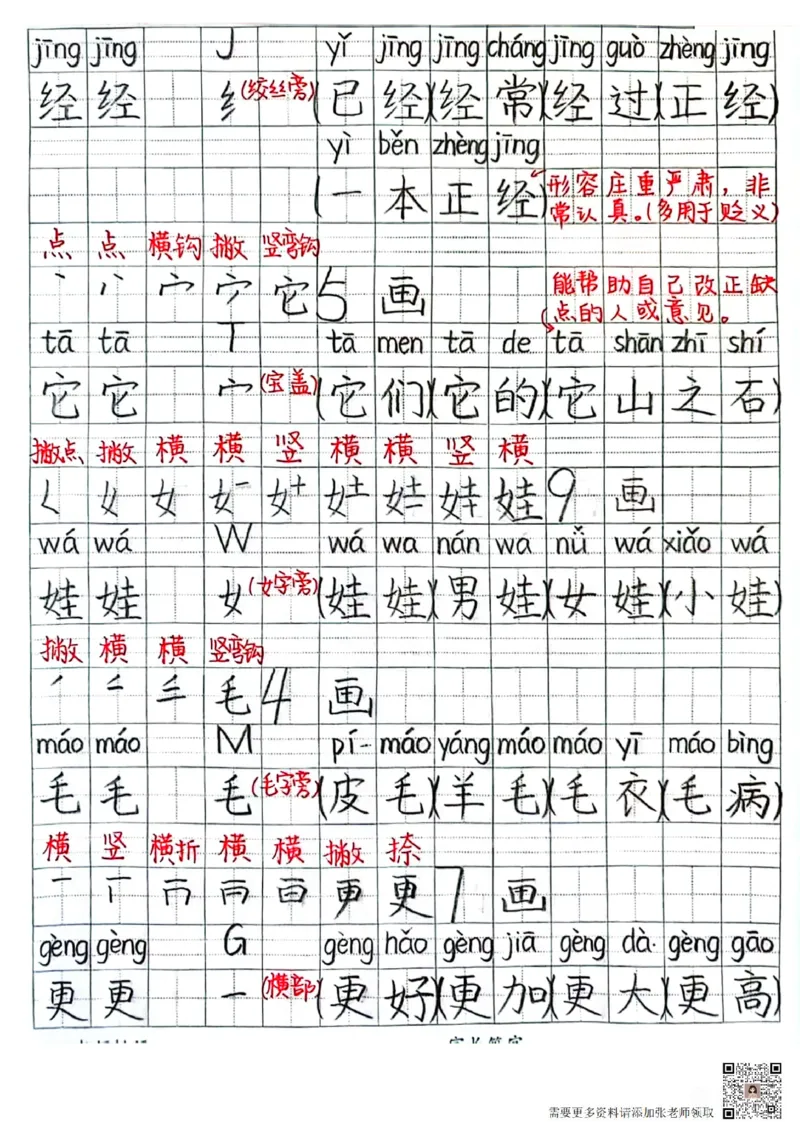 jīng jīng J yǐ jīng jīng cháng jīng guò zhèng jīng
经 经 纟(绞丝旁)(已经)(经常)(经过)(正经)
yì běn zhèng jīng
(一本正经)形容庄重严肃，非
常认真。(多用于贬义)
点 点 横钩 撇 竖弯钩
它 5 画
能帮助自己改正缺
点的人或意见。
tā tā T tā men tā de tā shān zhī shí
它 它 宀(宝盖)(它们)(它的)(它山之石)
撇点 撇 横 横 竖 横 横 竖 横
女 娃 9 画
wá wá W wá wa nán wá nǚ wá xiǎo wá
娃 娃 女(女字旁)(娃娃)(男娃)(女娃)(小娃)
撇 横 横 竖弯钩
毛 4 画
máo máo M pí máo yáng máo máo yī máo bìng
毛 毛 毛(毛字旁)(皮毛)(羊毛)(毛衣)(毛病)
横 竖 横折 横 横 撇 捺
更 7 画
gèng gèng G gèng hǎo gèng jiā gèng dà gèng gāo
更 更 一(横部)(更好)(更加)(更大)(更高)
需要更多资料请添加张老师领取